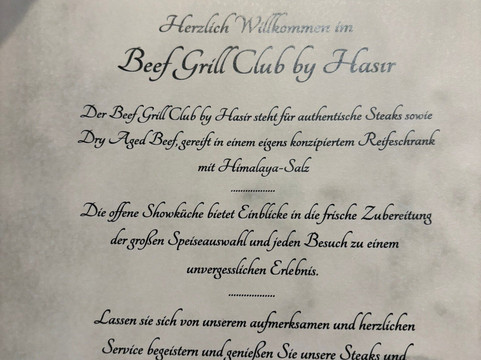 Herzlich Willkommen im
Beef Grill Club by Hasır
Der Beef Grill Club by Hasir steht für authentische Steaks sowie
Dry Aged Beef, gereift in einem eigens konzipiertem Reifeschrank
mit Himalaya-Salz
..................
Die offene Showküche bietet Einblicke in die frische Zubereitung
der großen Speiseauswahl und jeden Besuch zu einem
unvergesslichen Erlebnis.
..................
Lassen sie sich von unserem aufmerksamen und herzlichen
Service begeistern und genießen Sie unsere Steaks und